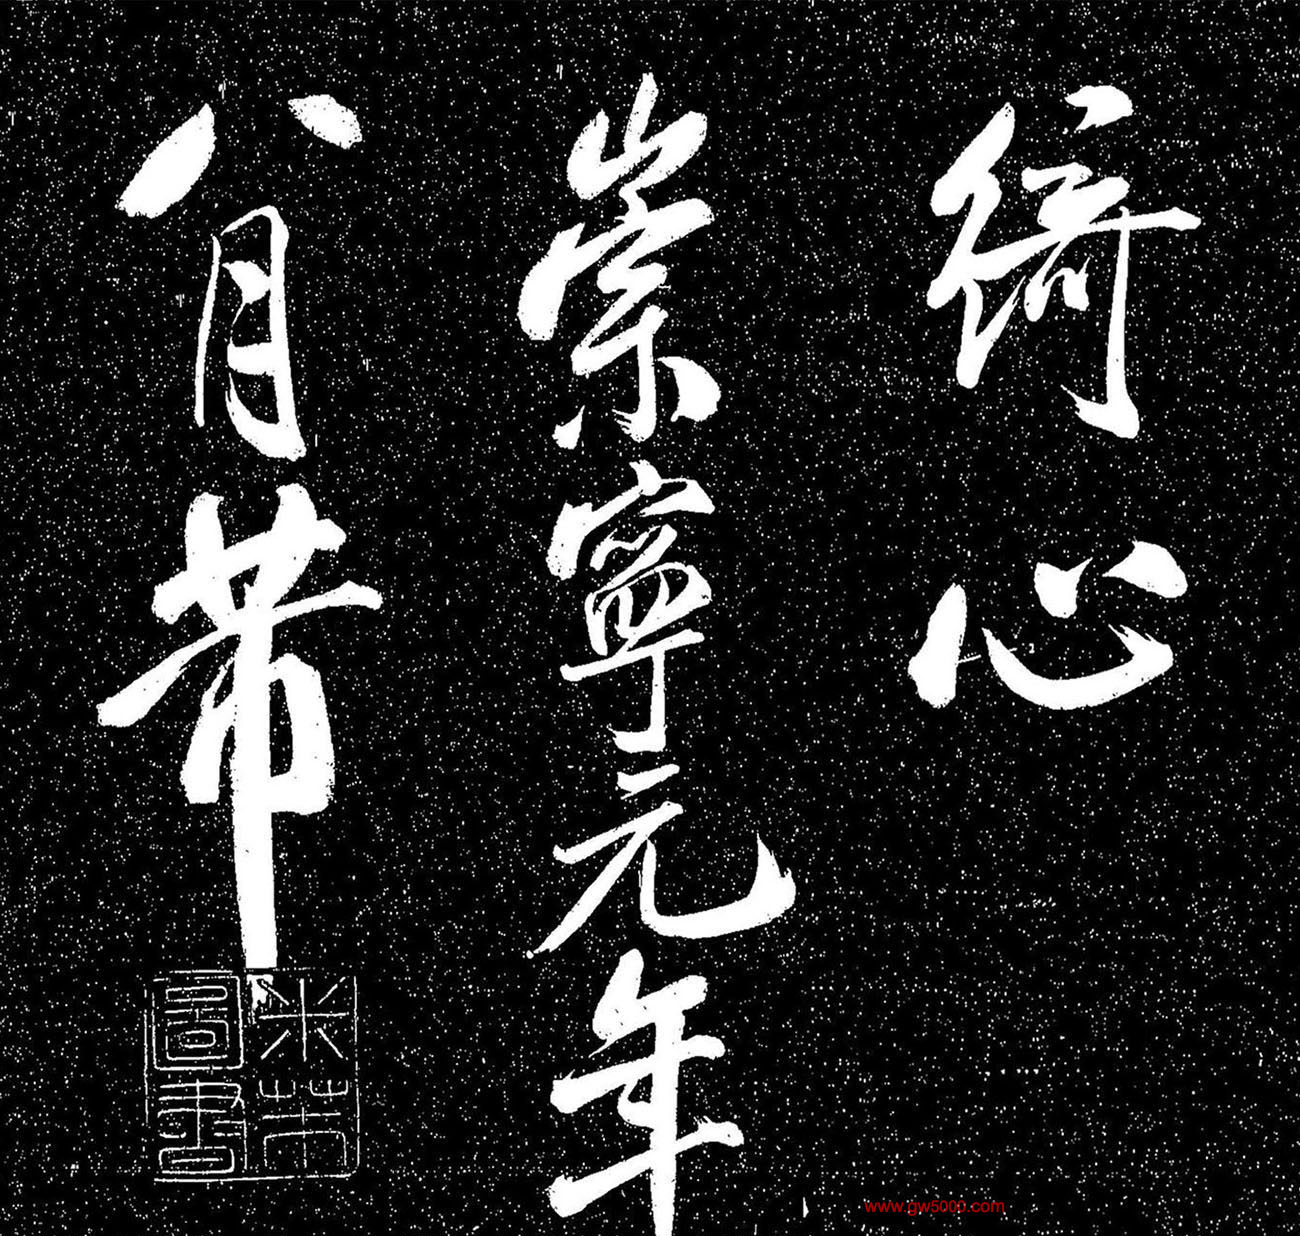 綺心
崇寧元年
八月芾
米芾
圖書
www.gw5000.com